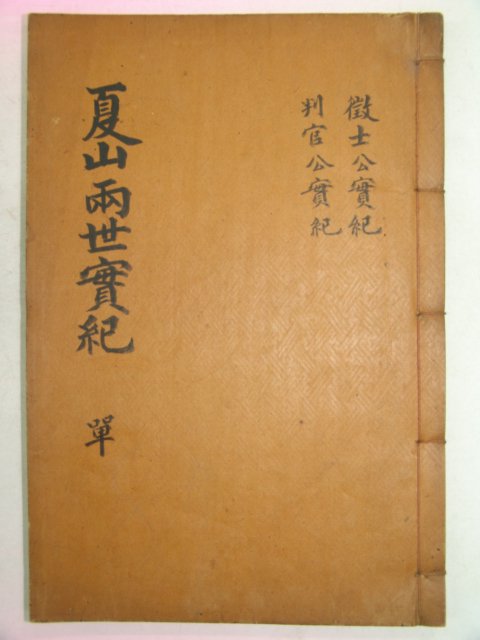 徵士公實紀
判官公實紀
夏山兩世實紀 單